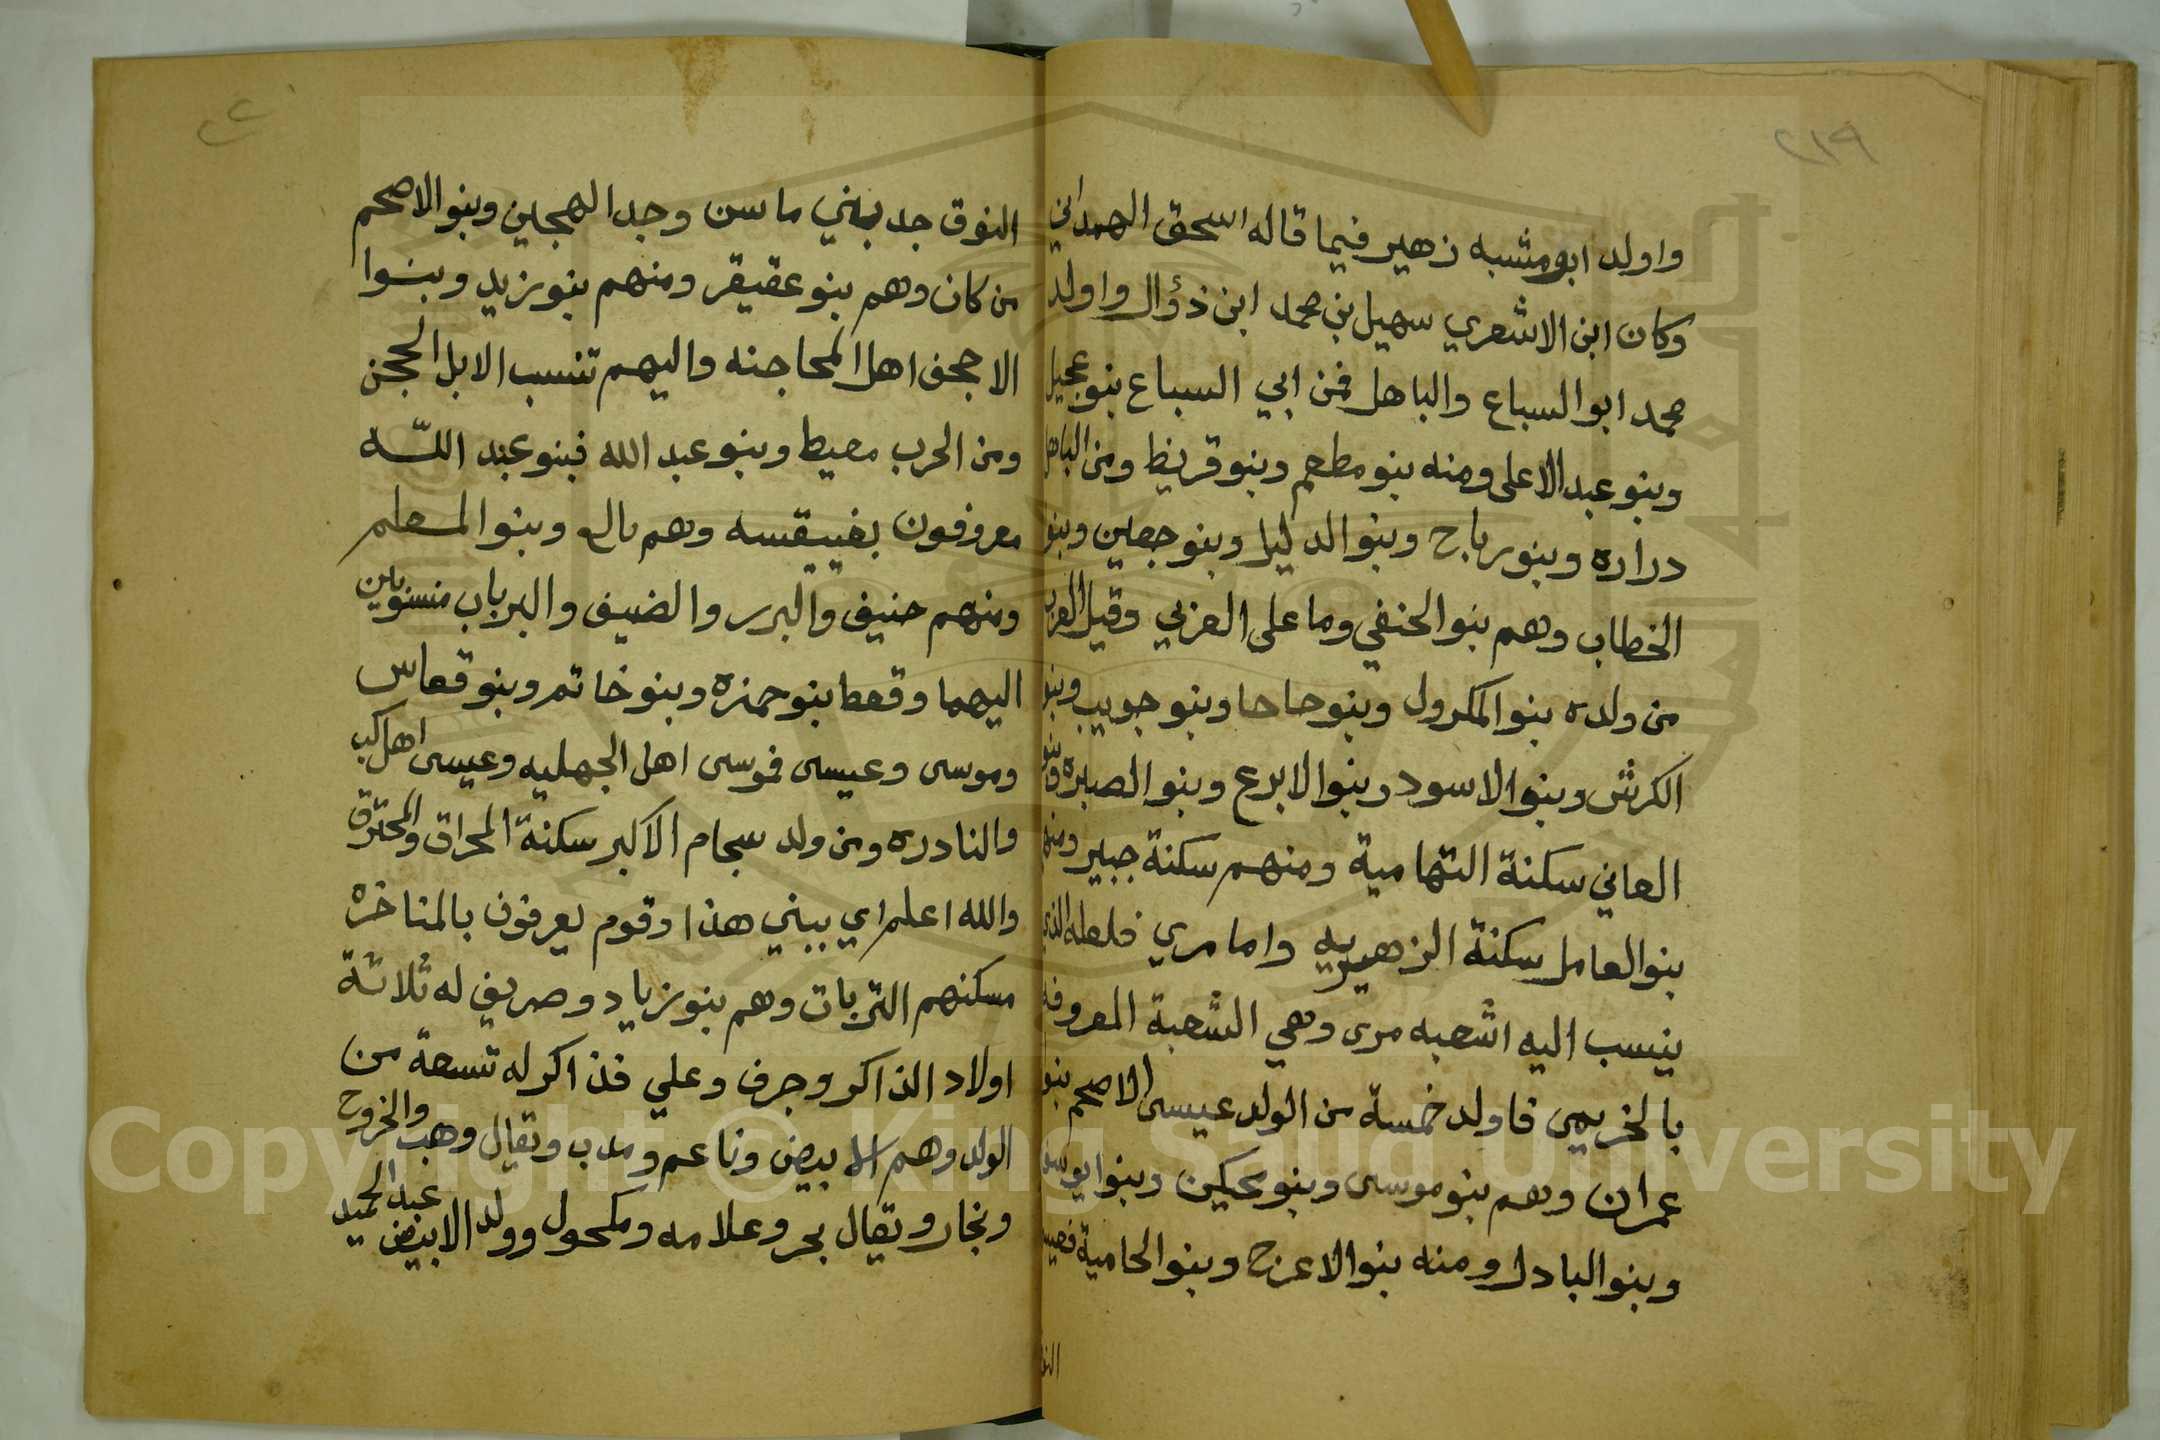 ٢١٩
واولد ابو مشبه زهير فيما قاله اسحق الهمداني
وكان ابن الاشعري سهيل بن محمد ابن ذؤال واولد
محمد ابو السباع والباهل فمن ابي السباع بنو عجيل
وبنو عبد الاعلى ومنه بنو مطعم وبنو قريظ ومن الباهل
دراره وبنو رباح وبنو الدليل وبنو جعين وبنو
الخطاب وهم بنو الحنفي وما على العزبي وقيل العرب
من ولده بنو المكرول وبنو حاحا وبنو جويب وبنو
الكرش وبنو الاسود وبنو الابرع وبنو الصبره وبنو
العاني سكنة التهامية ومنهم سكنة جبير ومنهم
بنو العامل سكنة الزهيريه واما مري فلعله الذي
ينسب اليه اشعبه مرى وهي الشعبة المعروفه
بالخريمي فاولد خمسة من الولد عيسى الاصحم بنو
عمران وهم بنو موسى وبنو محكين وبنو ابو
وبنو البادل ومنه بنو الاعرج وبنو الحامية
النوق جد بيني ماسن وجد الهجين وبنو الاصحم
من كان وهم بنو عقيقر ومنهم بنو زيد وبنوا
الاحجف اهل المحاجنه واليهم تنسب الابل الحجن
ومن الحرب معيط وبنو عبد الله فبنو عبد اللـه
معروفون بغييقسه وهم بالع وبنو المعلم
ومنهم حنيف والبرر والضيف والبرباب منسوبين
اليهما وقعط بنو حمزه وبنو خاتم وبنو قعاس
وموسى وعيسى فموسى اهل الجهليه وعيسى اهل كب
والنادره ومن ولد سجام الاكبر سكنة المحراق والمحترق
والله اعلم اي بيني هذا وقوم يعرفون بالمناخره
مسكنهم التربات وهم بنو زياد وصريف له ثلاثة
اولاد الذاكر وجرف وعلي فذاكر له تسعة من
الولد وهم الابيض وناعم ومدب ويقال وهب والخروح
ونجار ويقال بحر وعلامه ومكحول وولد الابيض عبد الحميد
Copyright © King Saud University